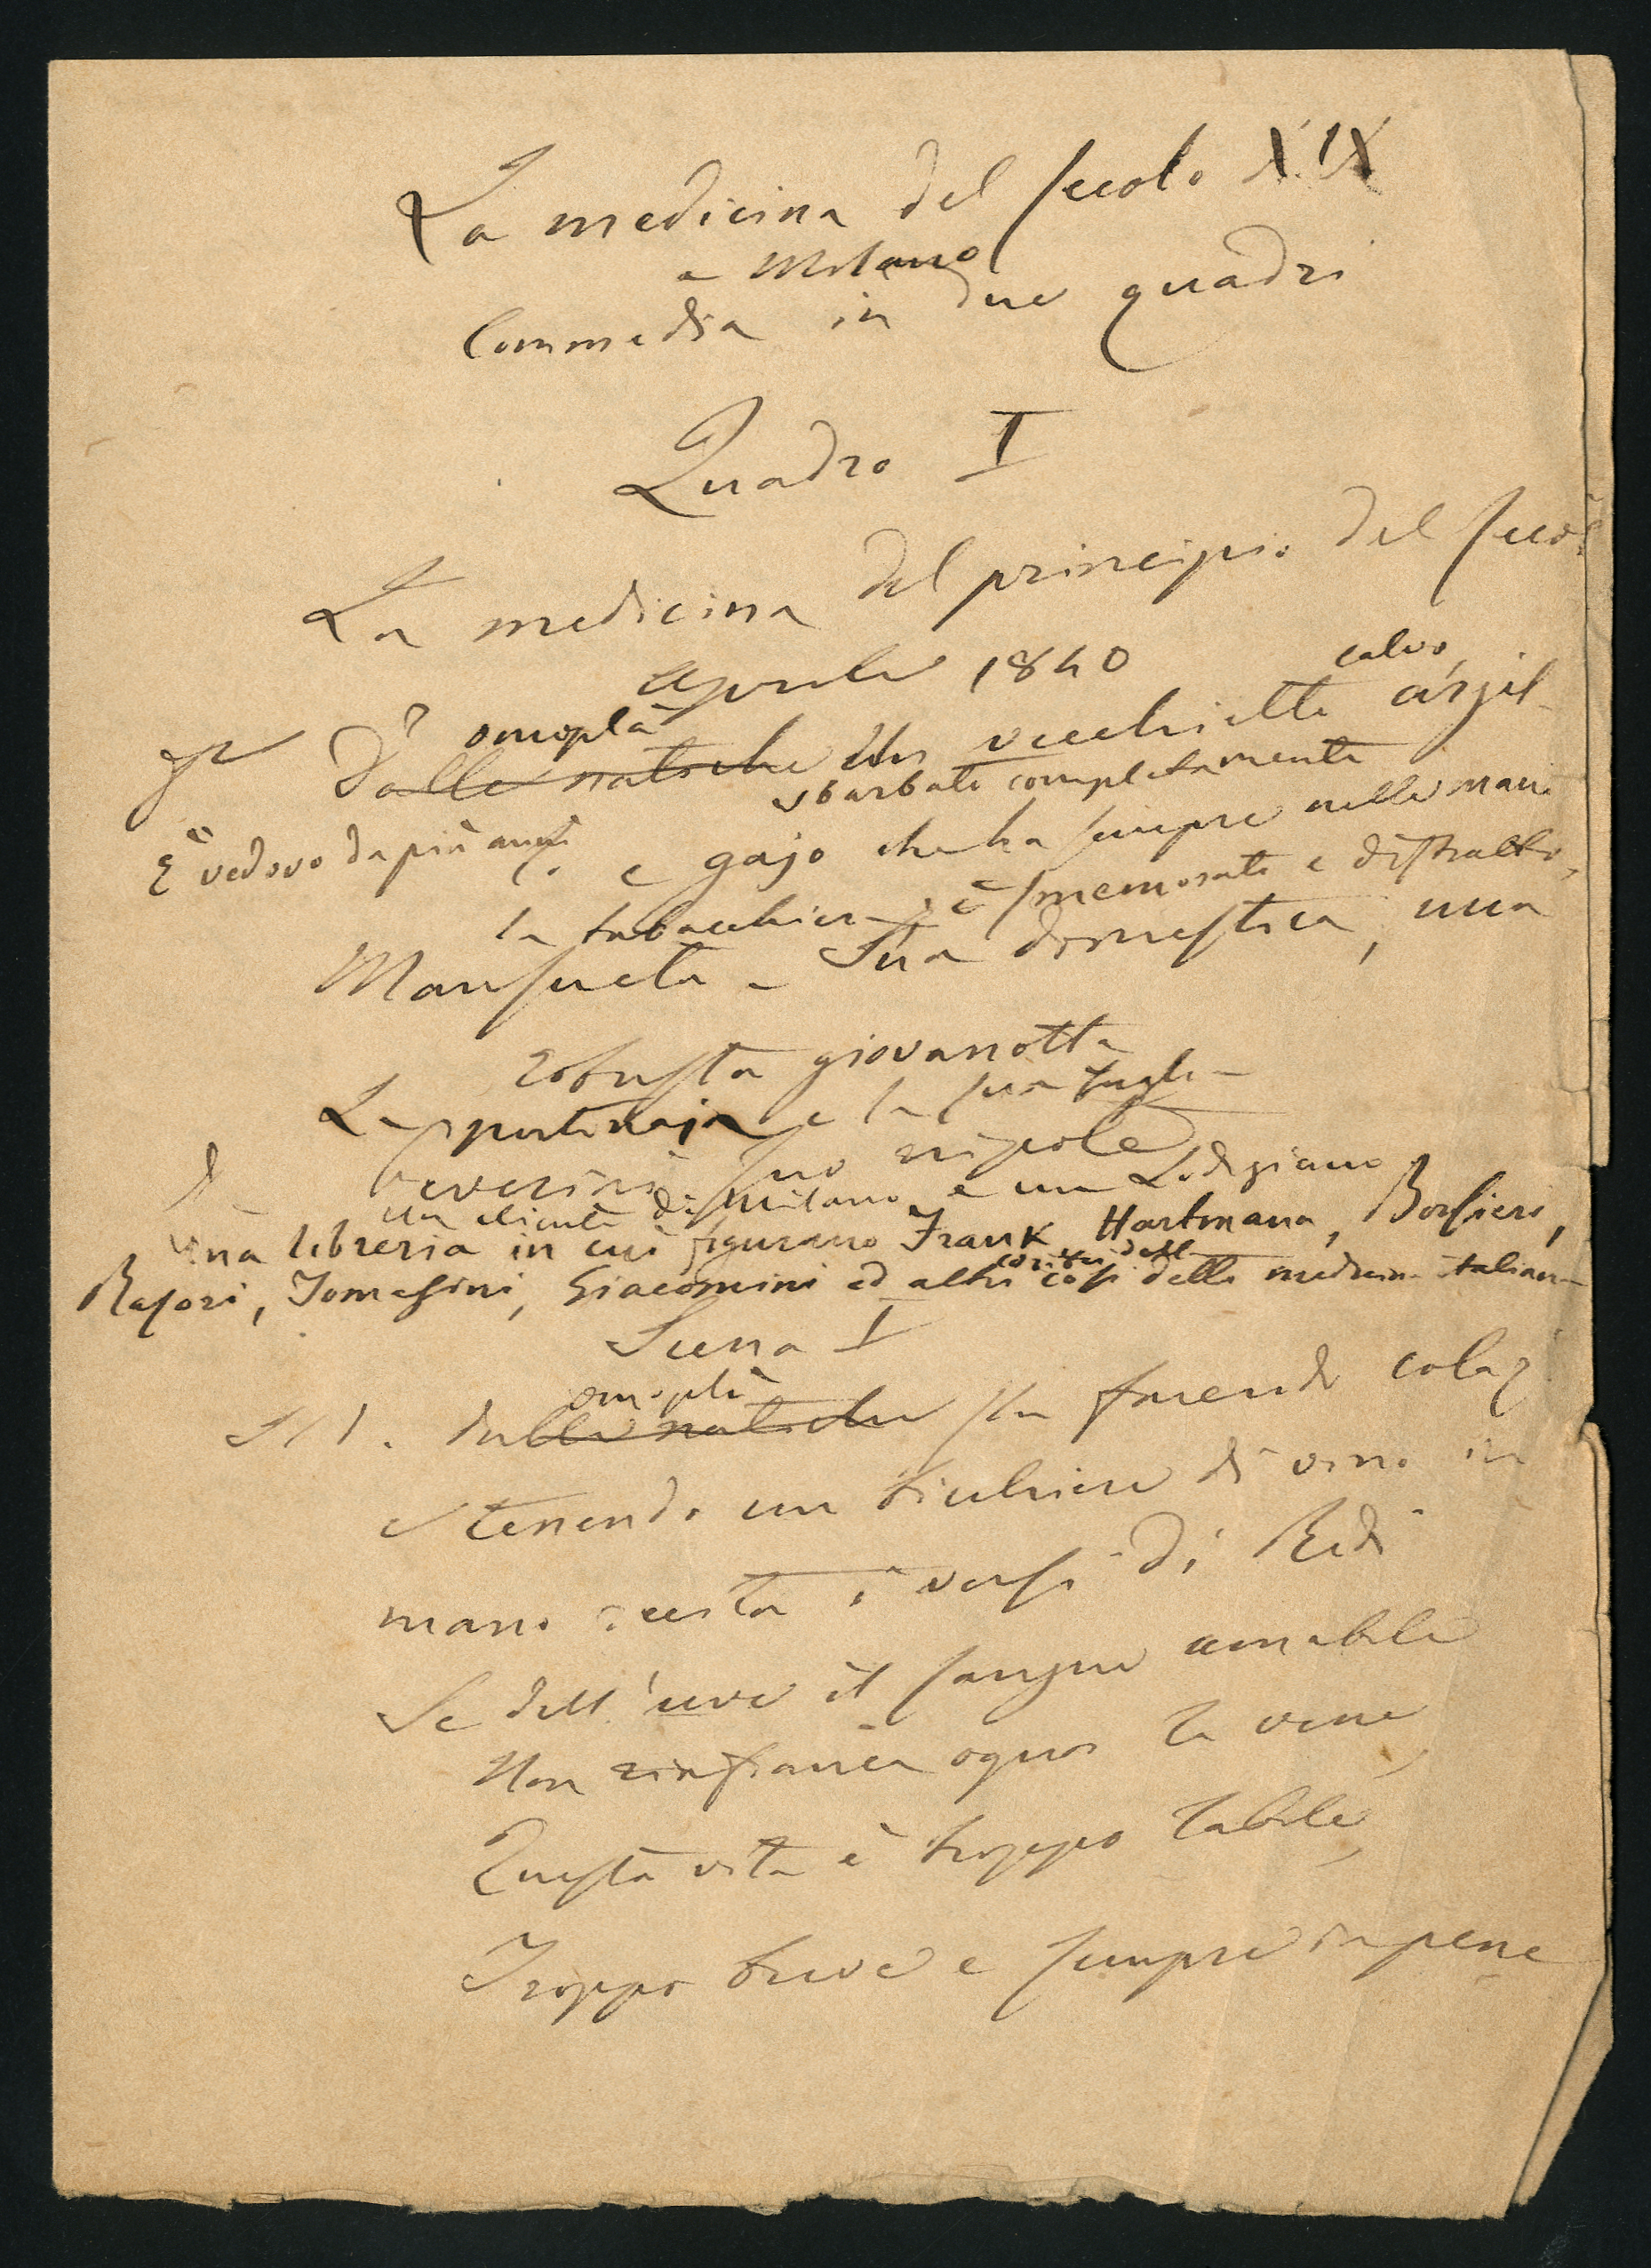 La medicina del secolo XIX
a Milano
Commedia in due quadri
Quadro I
La medicina del principio del seco
Aprile 1840
calvo,
omoplà
Dalle natiche Un vecchietto arzil-
sbarbato completamente
È vedovo da più anni
e gajo che ha sempre nelle mani
la tabacchiera, è smemorato e distratto,
Mansueta - Sua domestica, una
robusta giovanotta
La portinaja e la sua figlia
suo nipote
Un cliente di Milano e un Lodigiano
Una libreria in cui figurano Frank, Hartmann, Borsieri,
Rasori, Tomasini, Giacomini ed altri corifei della medicina italiana
Scena I
omoplà
Il D. dalle natiche sta facendo colaz
e tenendo un bicchiere di vino in
mano recita i versi di Redi
Se dell'uve il sangue amabile
Non rinfranca ognor le vene,
Questa vita è troppo labile,
Troppo breve e sempre in pene